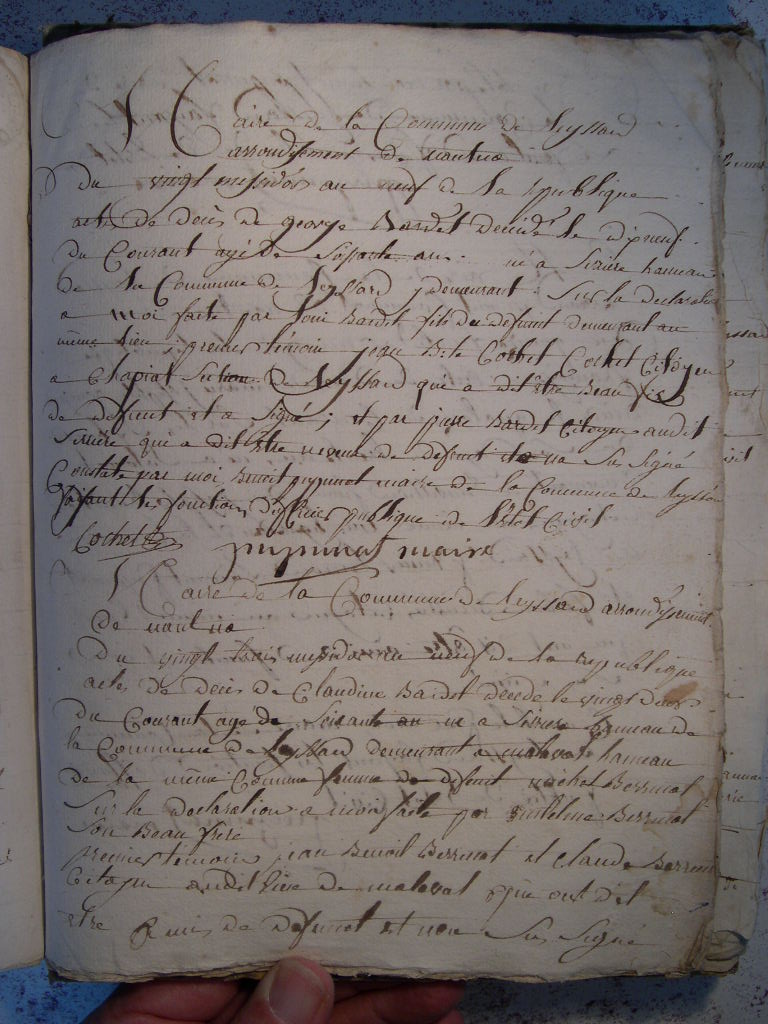 Maire de la Commune de leyssard
arrondisement de nantua
Du vingt messidor an neuf de la republique
acte de deces de george Bardet decede le dixneuf
du Courant agé de soisante an ne a Siriere hameau
de la Commune de Leyssard y demeurant Sur la declaration
a moi faite par Bardet fils du defunt demeurant au
même lieu premier temoin jean Bte Cochet Cochet Citoyen
a Chapiat Section de Leyssard qui a dit être Beau fils
de defunt et a Signé ; et par pierre Bardet Citoyen audit
Siriere qui a dit être neveu de defunt na Su Signé
Constaté par moi Benoit pupunat maire de la Commune de leyssard
fesant les fonctions dofficier publique de l'état Civil
Cochet pupunat maire
Maire de la Commune de leyssard arrondisement
de nantua
Du vingt trois messidor an neuf de la republique
acte de deces de Claudine Bardet decede le vingt deux
du Courant age de Soisante an ne a Siriere hameau de
la Commune de leyssard demeurant a maleval hameau
de la même Commune femme de defunt michel Berrinat
Sur la declaration a moi faite par antelme Berrinat
Son Beau frere
premier temoin jean Benoit Berrinat et Claude
Citoyen audit lieu de maleval qui ont dit
etre amis de defunt et non Su Signé